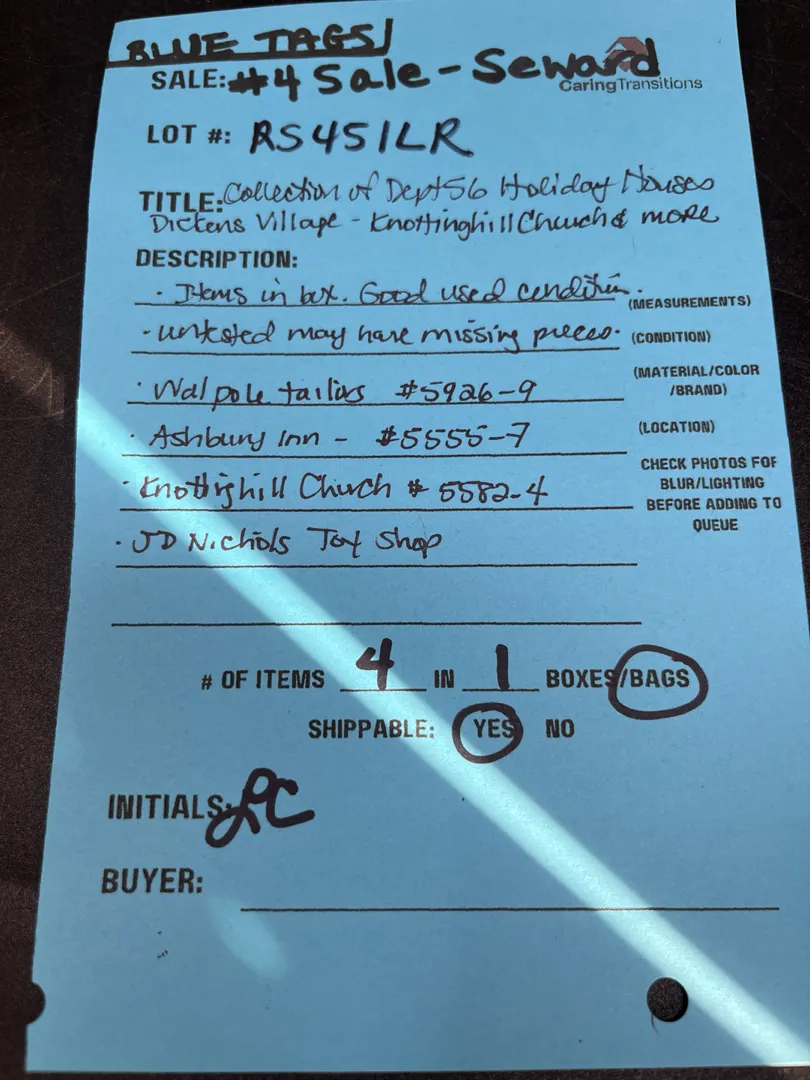 BLUE TAGS!
SALE: #4 Sale - Seward
CaringTransitions
LOT #: RS451LR
TITLE: Collection of Dept 56 Holiday Houses
Dickens Village - Knottinghill Church & more
DESCRIPTION:
· Items in box. Good used condition.
(MEASUREMENTS)
· untested may have missing pieces.
(CONDITION)
(MATERIAL/COLOR
/BRAND)
· Walpole tailors #5926-9
(LOCATION)
· Ashbury Inn - #5555-7
CHECK PHOTOS FOR
BLUR/LIGHTING
BEFORE ADDING TO
QUEUE
· Knottighill Church # 5582-4
· JD Nichols Toy Shop
# OF ITEMS 4 IN 1 BOXES/BAGS
SHIPPABLE: YES NO
INITIALS: LC
BUYER: